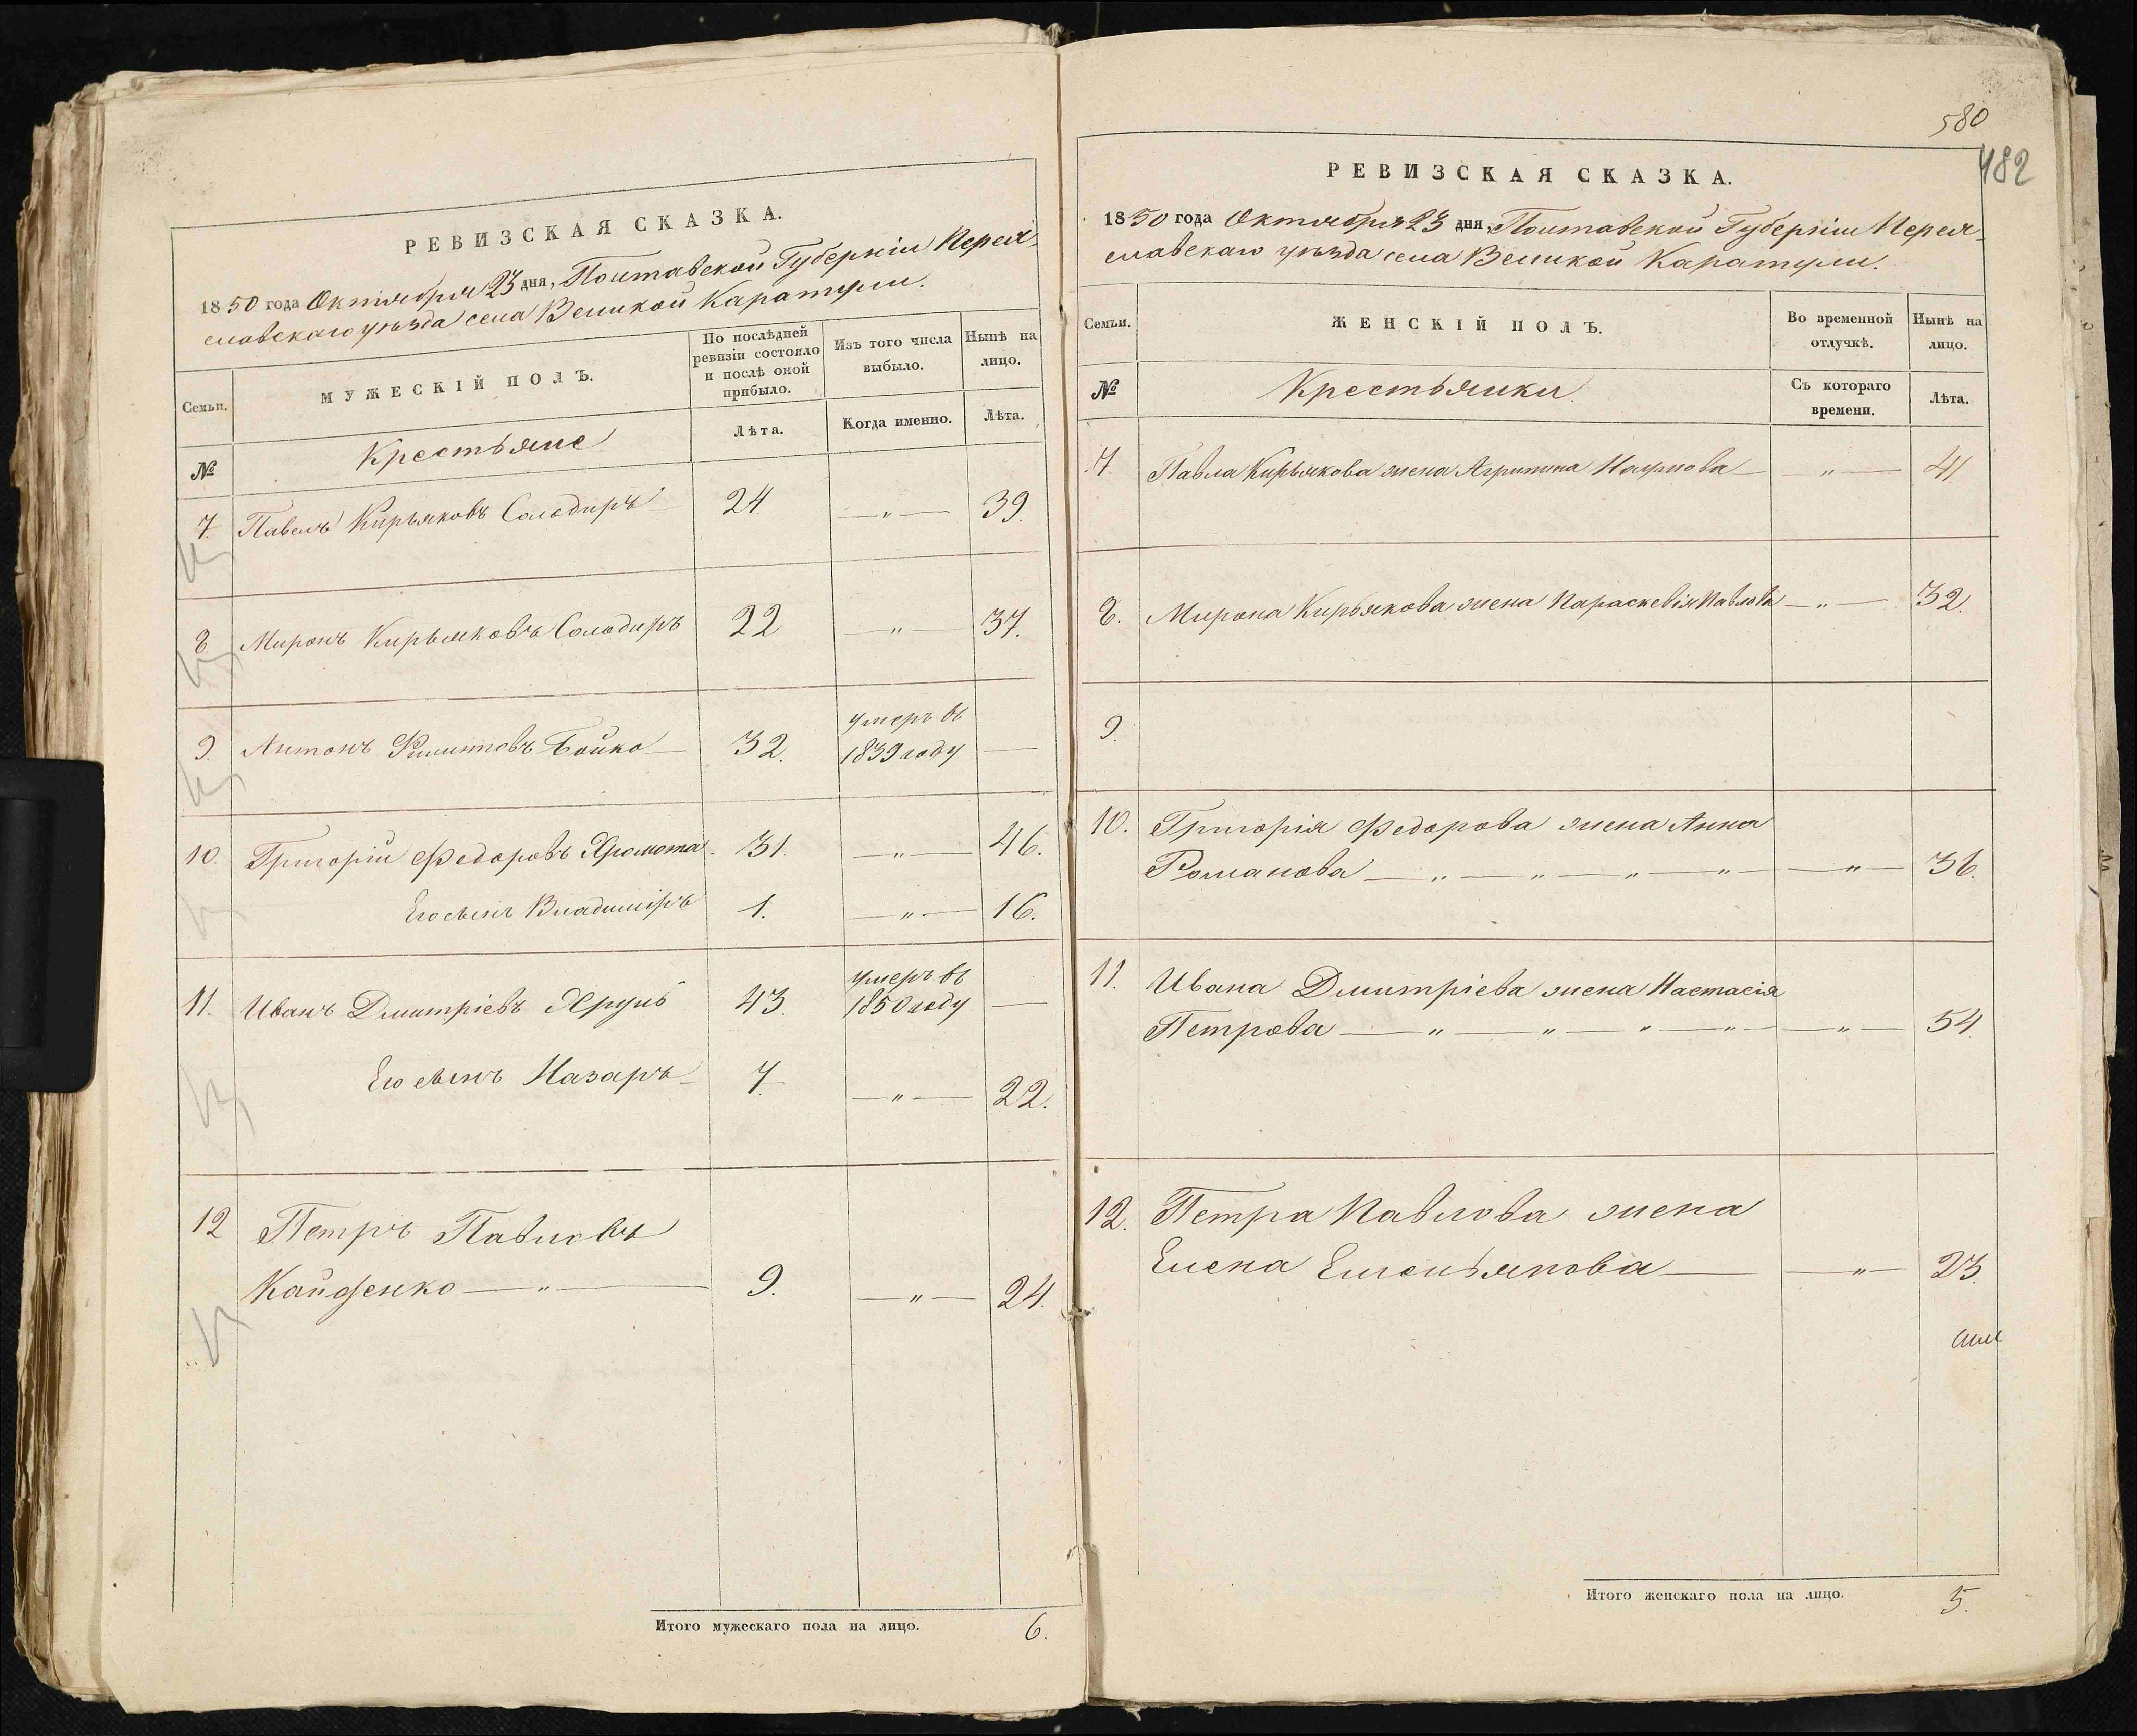 РЕВИЗСКАЯ СКАЗКА.
1850 года Октября 23 дня, Полтавской Губернiи Перея-
славскаго уѣзда села Великой Каратули.
Семьи.
МУЖЕСКIЙ ПОЛЪ.
По послѣдней
ревизiи состояло
и послѣ оной
прибыло.
Изъ того числа
выбыло.
Нынѣ на
лицо.
№
Крестьяне
Лѣта.
Когда именно.
Лѣта.
7. Павелъ Кирьяковъ Солодиръ 24 — " — 39.
8. Миронъ Кирьяковъ Солодиръ 22 " 37.
умеръ въ
9. Антонъ Филиповъ Бойко — 32. 1839 году —
10. Григорiй Федоровъ Хромота 31. — " — 46.
Его сынъ Владимiръ 1. — " — 16.
умеръ въ
11. Иванъ Дмитрiевъ 43. 1850 году —
Его сынъ Назаръ — 7. — " — 22.
12 Петръ Павловъ
— " — 9. — " — 24.
Итого мужескаго пола на лицо. 6.
580
482
РЕВИЗСКАЯ СКАЗКА.
1850 года Октября 23 дня, Полтавской Губернiи Перея-
славскаго уѣзда села Великой Каратули.
Семьи.
ЖЕНСКIЙ ПОЛЪ.
Во временной
отлучкѣ.
Нынѣ на
лицо.
№
Крестьянки.
Съ котораго
времени.
Лѣта.
7. Павла Кирьякова жена Агрипина Наумова — " — 41.
8. Мирона Кирьякова жена Параскевiя Павлова — " — 32.
9.
10. Григорiя Федорова жена Анна
Романова — " — " — " — " — " — 36.
11. Ивана Дмитрiева жена Настасiя
Петрова — " — " — " — " — " — 54.
12. Петра Павлова жена
Елена Емельянова — " — 23.
Итого женскаго пола на лицо. 5.